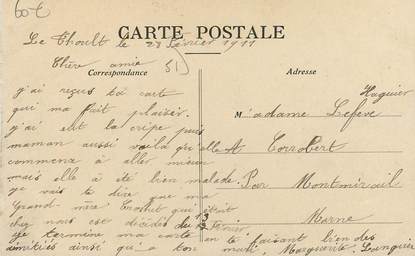 60€
CARTE POSTALE
Le Thoult le 28 février 1911
Chère amie
51
Correspondance
Adresse
j'ai reçus ta carte
qui ma fait plaisir.
j'ai eut la grippe puis
maman aussi voilà qu'elle
commence à aller mieux
mais elle à été bien malade.
je vais te dire que ma
Grand-mère Crochet qui était
chez nous est décédés du 13 février
je termine ma carte en te faisant bien des
amitiées ainsi qu'a ton mari, Marguerite
Haguier
Madame Lefève
A Corrobert
Par Montmirail
Marne